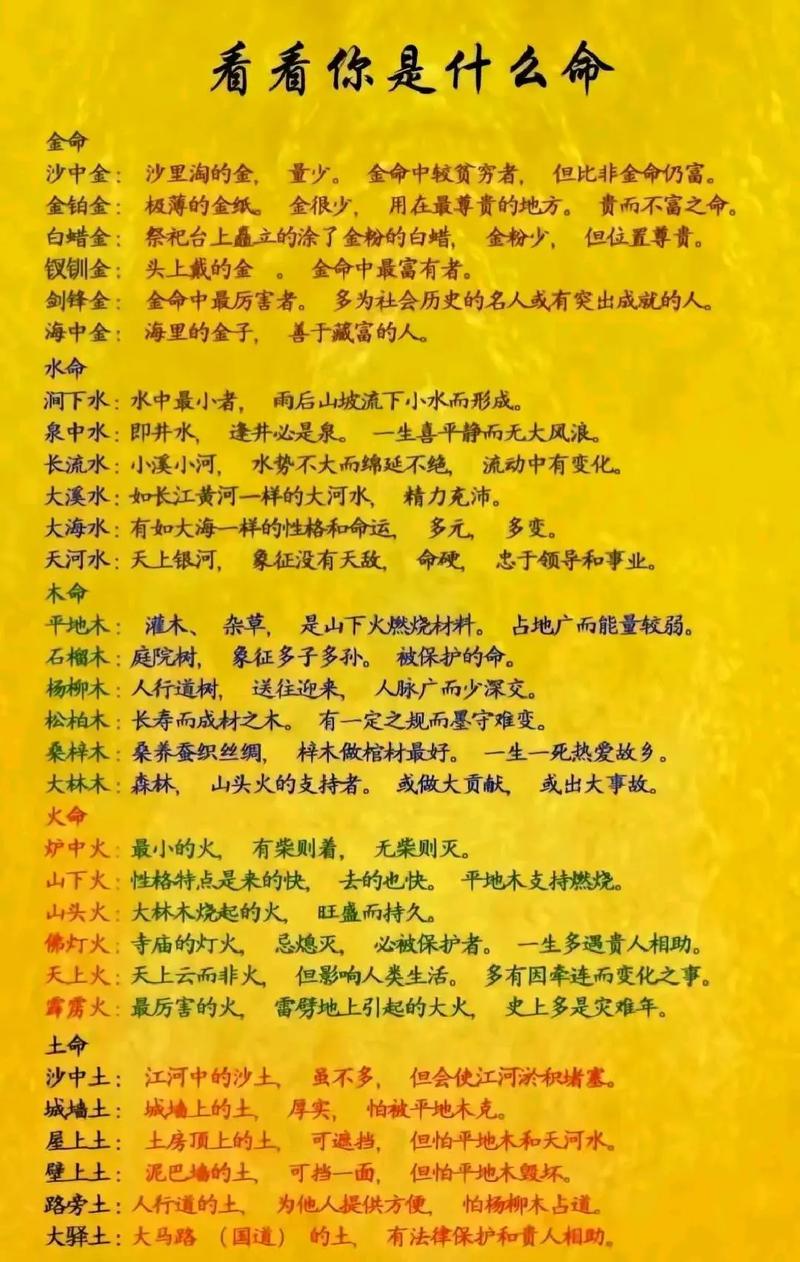 看看你是什么命
金命
沙中金： 沙里淘的金， 量少。 金命中较贫穷者， 但比非金命仍富。
金铂金： 极薄的金纸。 金很少， 用在最尊贵的地方。 贵而不富之命。
白蜡金： 祭祀台上矗立的涂了金粉的白蜡， 金粉少， 但位置尊贵。
钗钏金： 头上戴的金 。 金命中最富有者。
剑锋金： 金命中最厉害者。 多为社会历史的名人或有突出成就的人。
海中金： 海里的金子， 善于藏富的人。
水命
涧下水：水中最小者， 雨后山坡流下小水而形成。
泉中水：即井水， 逢井必是泉。 一生喜平静而无大风浪。
长流水：小溪小河， 水势不大而绵延不绝， 流动中有变化。
大溪水：如长江黄河一样的大河水， 精力充沛。
大海水：有如大海一样的性格和命运， 多元， 多变。
天河水：天上银河， 象征没有天敌， 命硬， 忠于领导和事业。
木命
平地木： 灌木、 杂草， 是山下火燃烧材料。 占地广而能量较弱。
石榴木：庭院树， 象征多子多孙。 被保护的命。
杨柳木：人行道树， 送往迎来， 人脉广而少深交。
松柏木：长寿而成材之木。 有一定之规而墨守难变。
桑梓木：桑养蚕织丝绸， 梓木做棺材最好。 一生一死热爱故乡。
大林木：森林， 山头火的支持者。 或做大贡献， 或出大事故。
火命
炉中火：最小的火， 有柴则着， 无柴则灭。
山下火：性格特点是来的快， 去的也快。 平地木支持燃烧。
山头火：大林木烧起的火， 旺盛而持久。
佛灯火：寺庙的灯火， 忌熄灭， 必被保护者。 一生多遇贵人相助。
天上火：天上云而非火， 但影响人类生活。 多有因牵连而变化之事。
霹雳火：最厉害的火， 雷劈地上引起的大火， 史上多是灾难年。
土命
沙中土： 江河中的沙土， 虽不多， 但会使江河淤积堵塞。
城墙土： 城墙上的土， 厚实， 怕被平地木克。
屋上土： 土房顶上的土， 可遮挡， 但怕平地木和天河水。
壁上土： 泥巴墙的土， 可挡一面， 但怕平地木毁坏。
路旁土：人行道的土， 为他人提供方便， 怕杨柳木占道。
大驿土：大马路 （国道） 的土， 有法律保护和贵人相助。